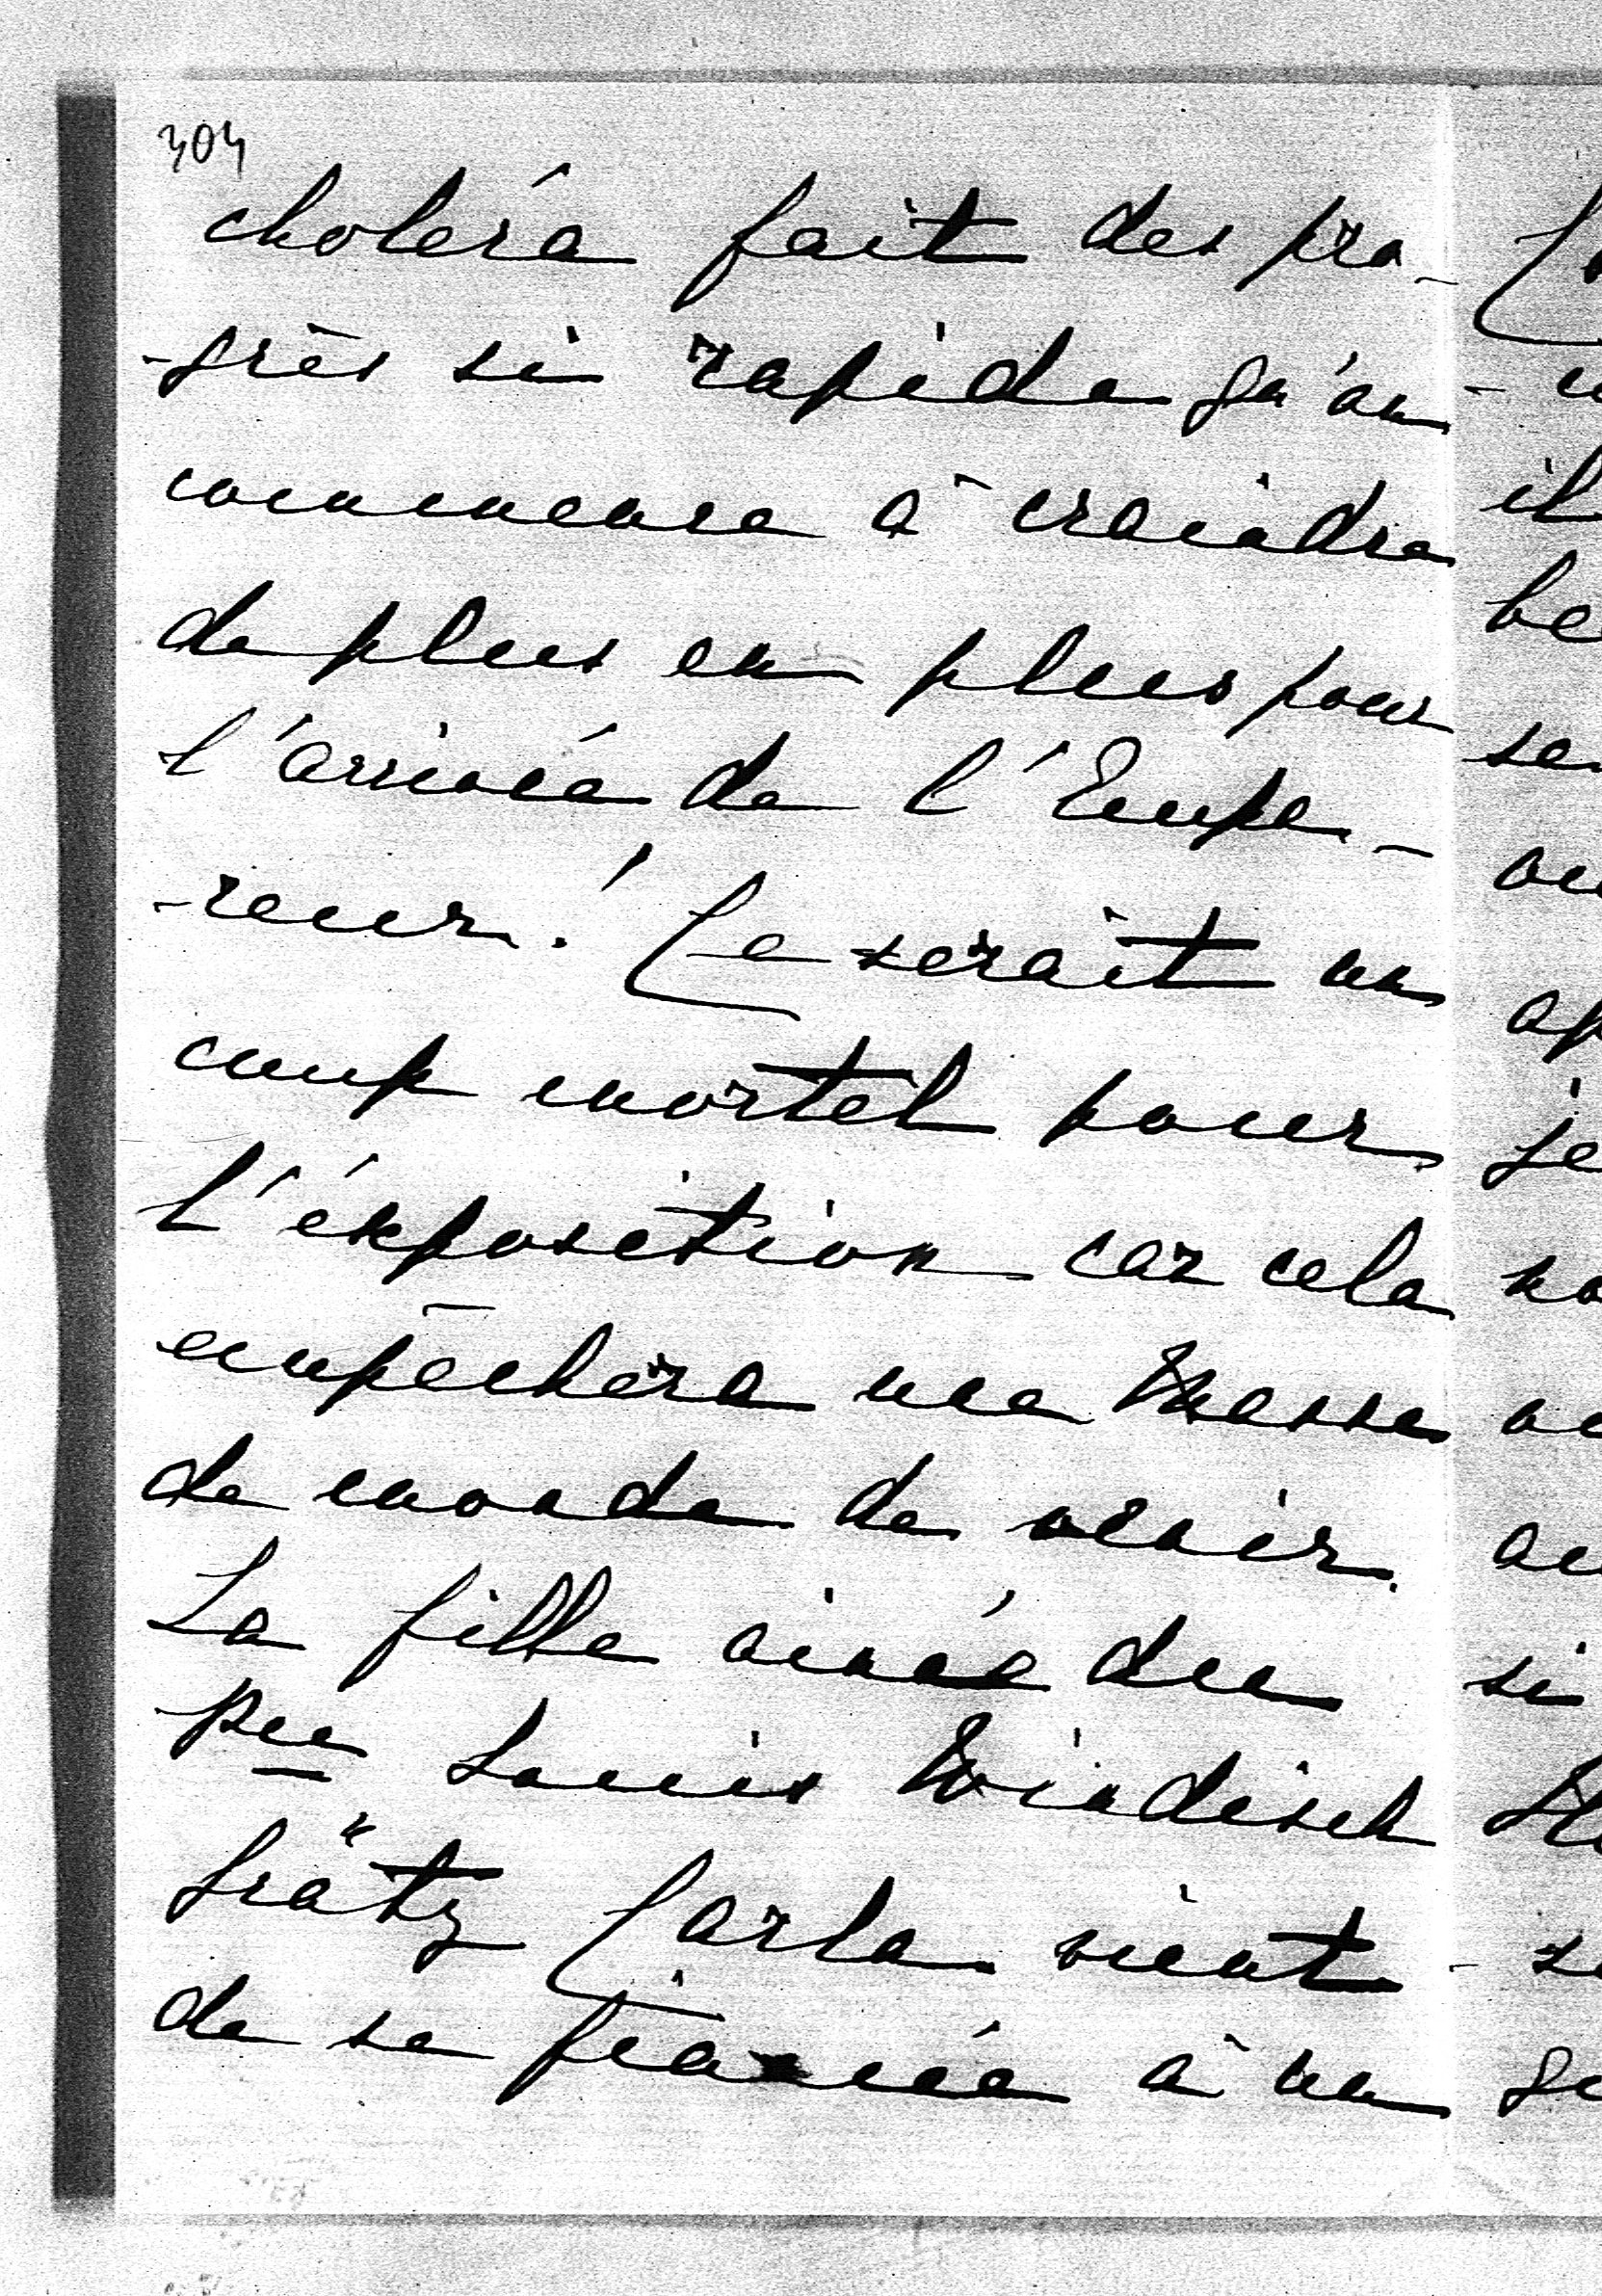 304
choléra fait des pro-
-grès si rapide qu'on
commence à craindre
de plus en plus pour
l'arrivée de l'Empe-
-reur! Ce serait un
coup mortel pour
l'éxposition car cela
empêchera une masse
de monde de venir.
La fille ainée du
pce Louis Windisch
grätz Carla vient
de se fiancée à un